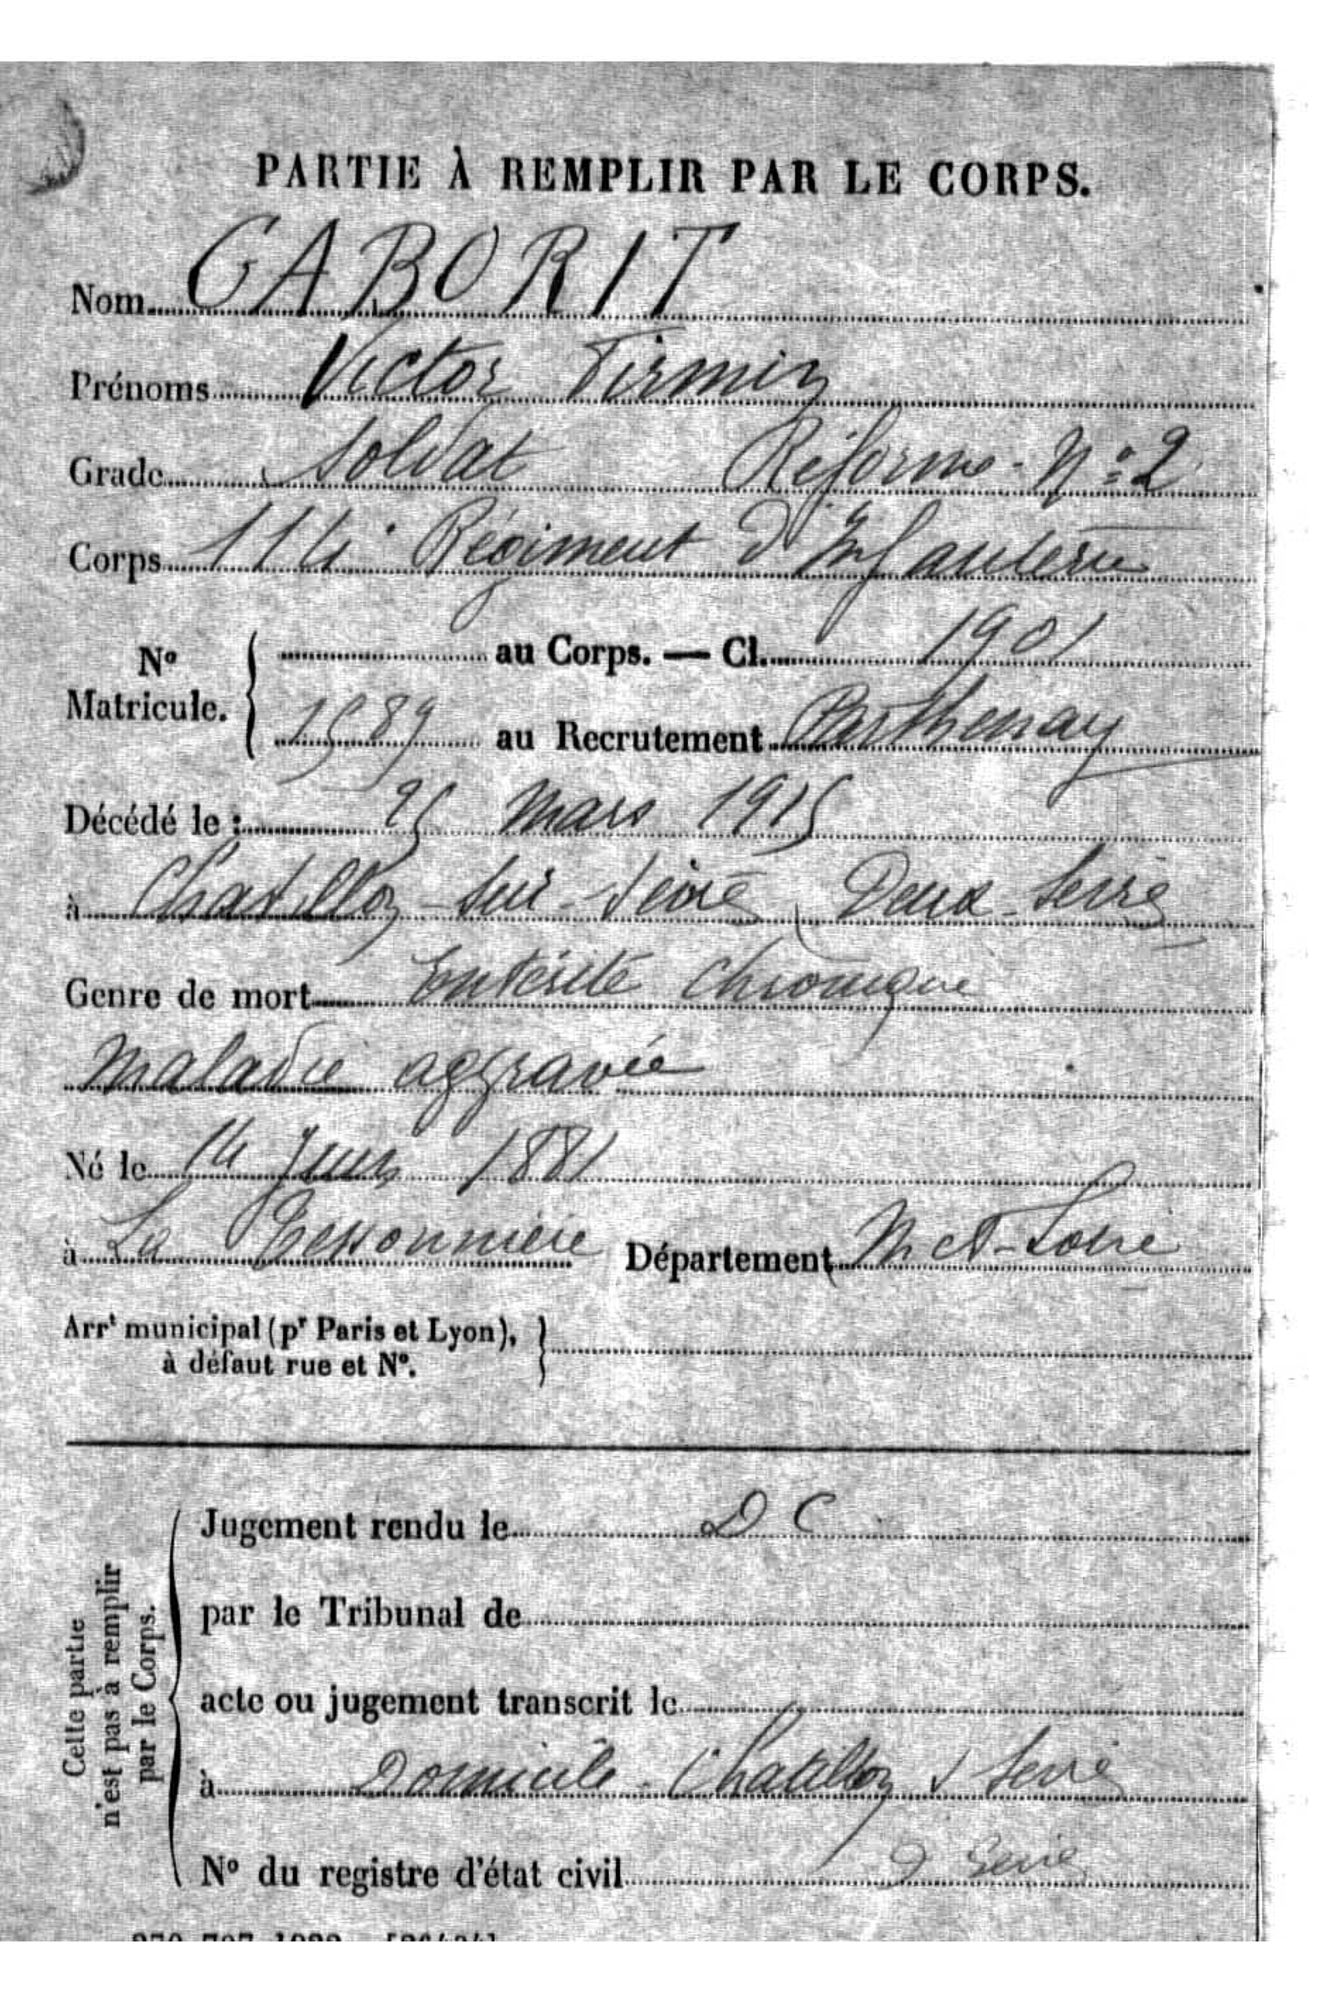 PARTIE À REMPLIR PAR LE CORPS.
Nom GABORIT
Prénoms Victor Firmin
Grade Soldat Réforme N° 2
Corps 114e Régiment d'Infanterie
N° Matricule. { au Corps. — Cl. 1901
1589 au Recrutement Parthenay
Décédé le : 25 Mars 1915
à Chatillon-sur-Sèvre (Deux-Sèvre
Genre de mort Entérite Chronique
Maladie aggravée
Né le 14 Juin 1881
à La Tessonnière Département M et-Loire
Arrt municipal (pr Paris et Lyon), }
à défaut rue et N°.
Cette partie
n'est pas à remplir
par le Corps.
Jugement rendu le DC
par le Tribunal de
acte ou jugement transcrit le
à Domicile. Chatillon s Sèvre
N° du registre d'état civil D Sèvre